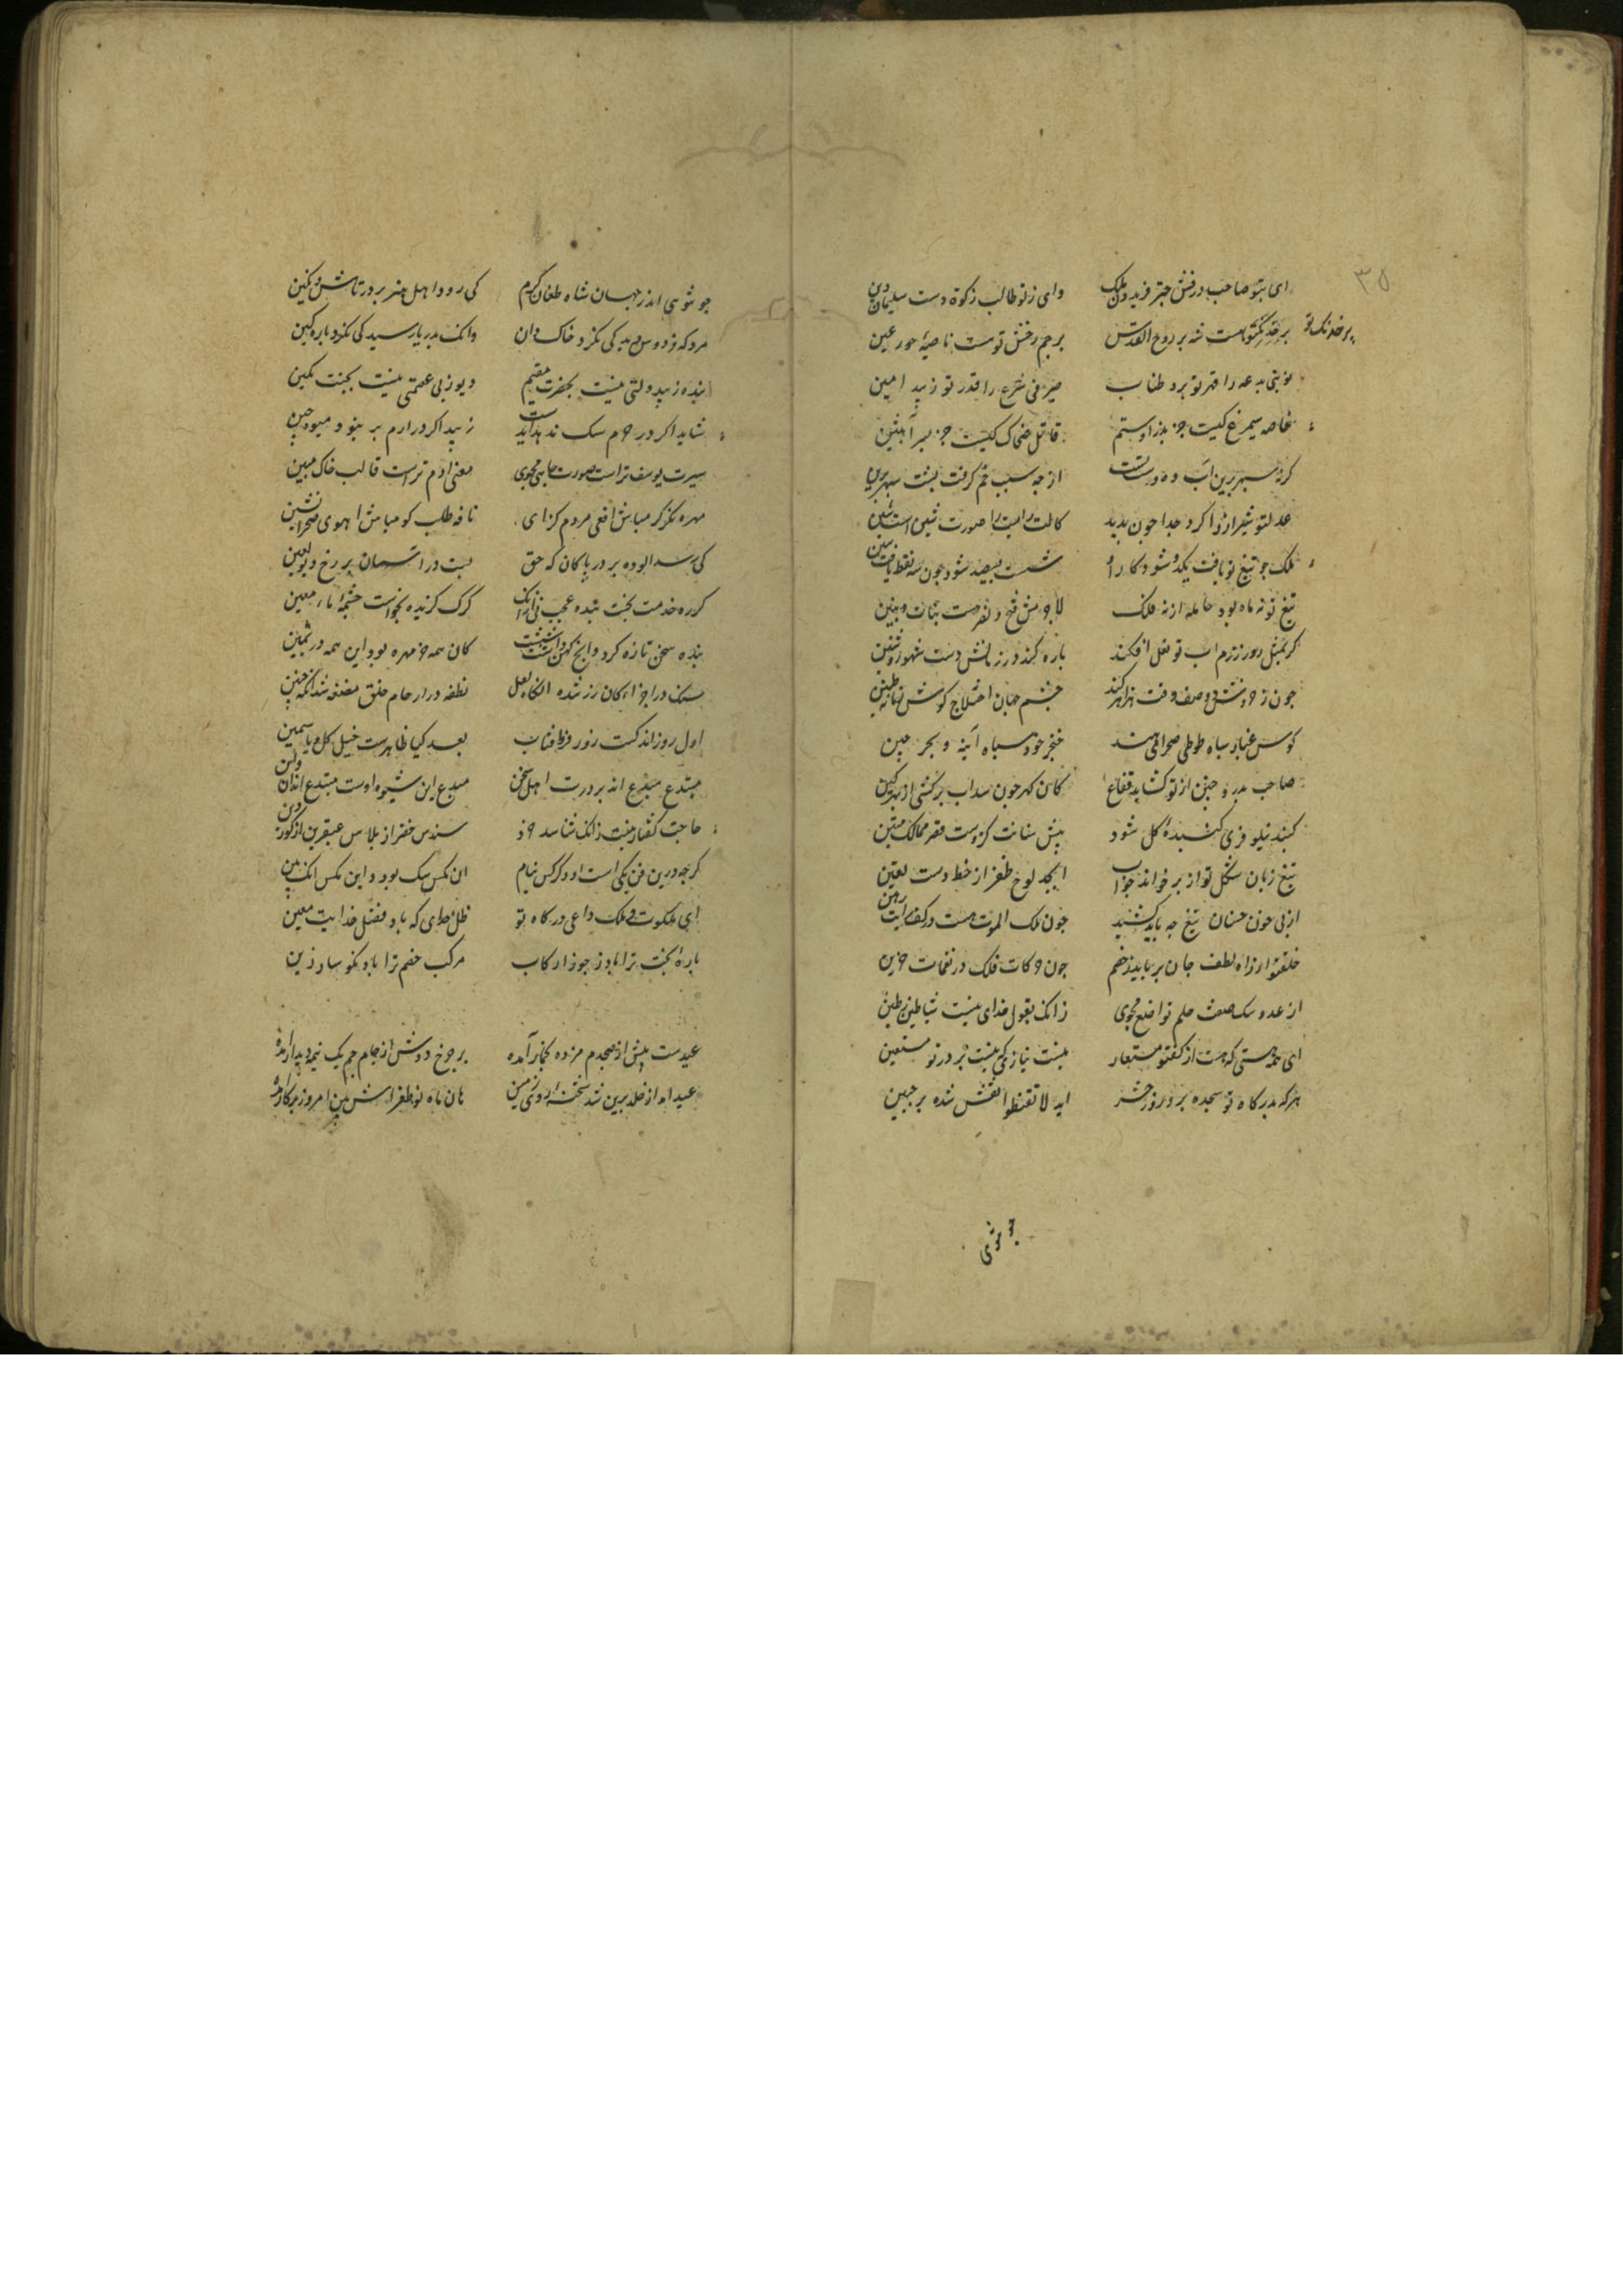 ۳۵
ای بتو صاحب درفش چتر فریدون ملک وای ز تو طالب زکوة دست سلیمان دین
بر خدنک تو هست شه بر روح القدس پر خدنک تو بر جم رخش تو هست ناصیهٔ حور عین
نوبتی بدعه را قهر تو برد طناب صیرفی شرع را قدر تو زیبد امین
خاصه سیمرغ کیست جز پدر روستم قاتل ضحاک کیست جز پسر آبتین
کرنه سپهر برین آب ده دست تست از چه سبب خم کرفت پشت سپهر برین
عدل تو شین را ز را کرد جدا چون بدید کالت رایست را صورت شین است شین
ملک چو تیغ تو یافت یکدو شود کار او شست بسیصد شود چون سه نقط یافت سین
تیغ تو نه ماه بود حامله از نه فلک لاجرمش فتح و نصرت بنات و بنین
کر بمثل روز رزم اسب تو نعل افکند یاره کند در زمانش دست شهور و سنین
چون ز خروش دو صف وقت هزاهز کند چشم جهان اختلاج کوش زمانه طنین
کوس غبار سپاه طوطی صحرای هند خنجر خون سپاه آینه و بحر چین
صاحب بدر و حنین از تو کشاید فقاع کان کهر چون سداب برکشی از بهر کین
کنبد نیلوفری کنبدهٔ کل شود پیش سنانت کزوست قصر ممالک متین
تیغ زبان شکل تو از بر خواند جو آب ابجد لوح ظفر از خط دست یقین
از پی خون خسان تیغ چه باید کشید چون ملک الموت هست در کف رایت رهین
خلق تو از راه لطف جان برباید ز خصم چون حرکات فلک در نغمات حزین
از عدو سک صفت حلم تواضع مجوی زانک بقول خدای نیست شیاطین ز طین
ای همه هستی که هست از کف تو مستعار نیست نیازی که نیست بر در تو مستعین
هر که بدرکاه تو سجده برد روز حشر ایه لا تقنطوا نقش شده بر جبین
چو توئی
چو توئی اندر جهان شاه طغان کرم کی رود اهل هنر بر در تاش و تکین
مرد که فردوس دید کی نکرد خاکدان وانک بدریا رسید کی نکرد پارکین
بنده ز بی دولتی نیست بحضرت مقیم دیو ز بی عصمتی نیست بجنت مکین
شاید اکر در حرم سک ندهد آب دست زیبد اکر در ارم بز نبود میوه چین
سیرت یوسف تراست صورت چاهی مجوی معنی آدم تراست قالب خاک مبین
مهره نکر کر مباش افعی مردم کزای نافه طلب کو مباش آهوی صحرا نشین
کی رسد آلوده بر در پاکان که حق بست در آسمان بر رخ دیو لعین
کر ره خدمت نجست بنده عجب نی از آنک کرک کزیده نخواست چشمهٔ ماء معین
بنده سخن تازه کرد وانچ کهن داشت شست کان همه خر مهره بود این همه در ثمین
سنک در اجزاء کان زر شده آنکاه لعل نطفه در ارحام خلق مضغه شد آنکه جنین
اول روز اندکست زور فر افتاب بعد کیا ظاهرست خیل کل و یاسمین
مبتدع مبدع اند بر درت اهل سخن مبدع این شیوه اوست مبتدع اند آن و این
حاجت کفتار نیست زانک شناسد خرد سندس خضر از پلاس عبقری از کوردین
کرچه درین فن یکی است او و دکر کس بنام آن مکس سک بود و این مکس انکبین
ای ملکوت و ملک داعی درکاه تو ظل خدای که باد فضل خدایت معین
بارهٔ بخت ترا باد ز جوزا رکاب مرکب خصم ترا باد نکوسار زین
عیدست پیش از صبحدم مژده بخمار آمده بر چرخ دوش از جام جم یک نیمه دیدار آمده
عید آمد از خلد برین شد شحنهٔ روی زمین هان ماه نو طغراش بین امروز بر کار آمده